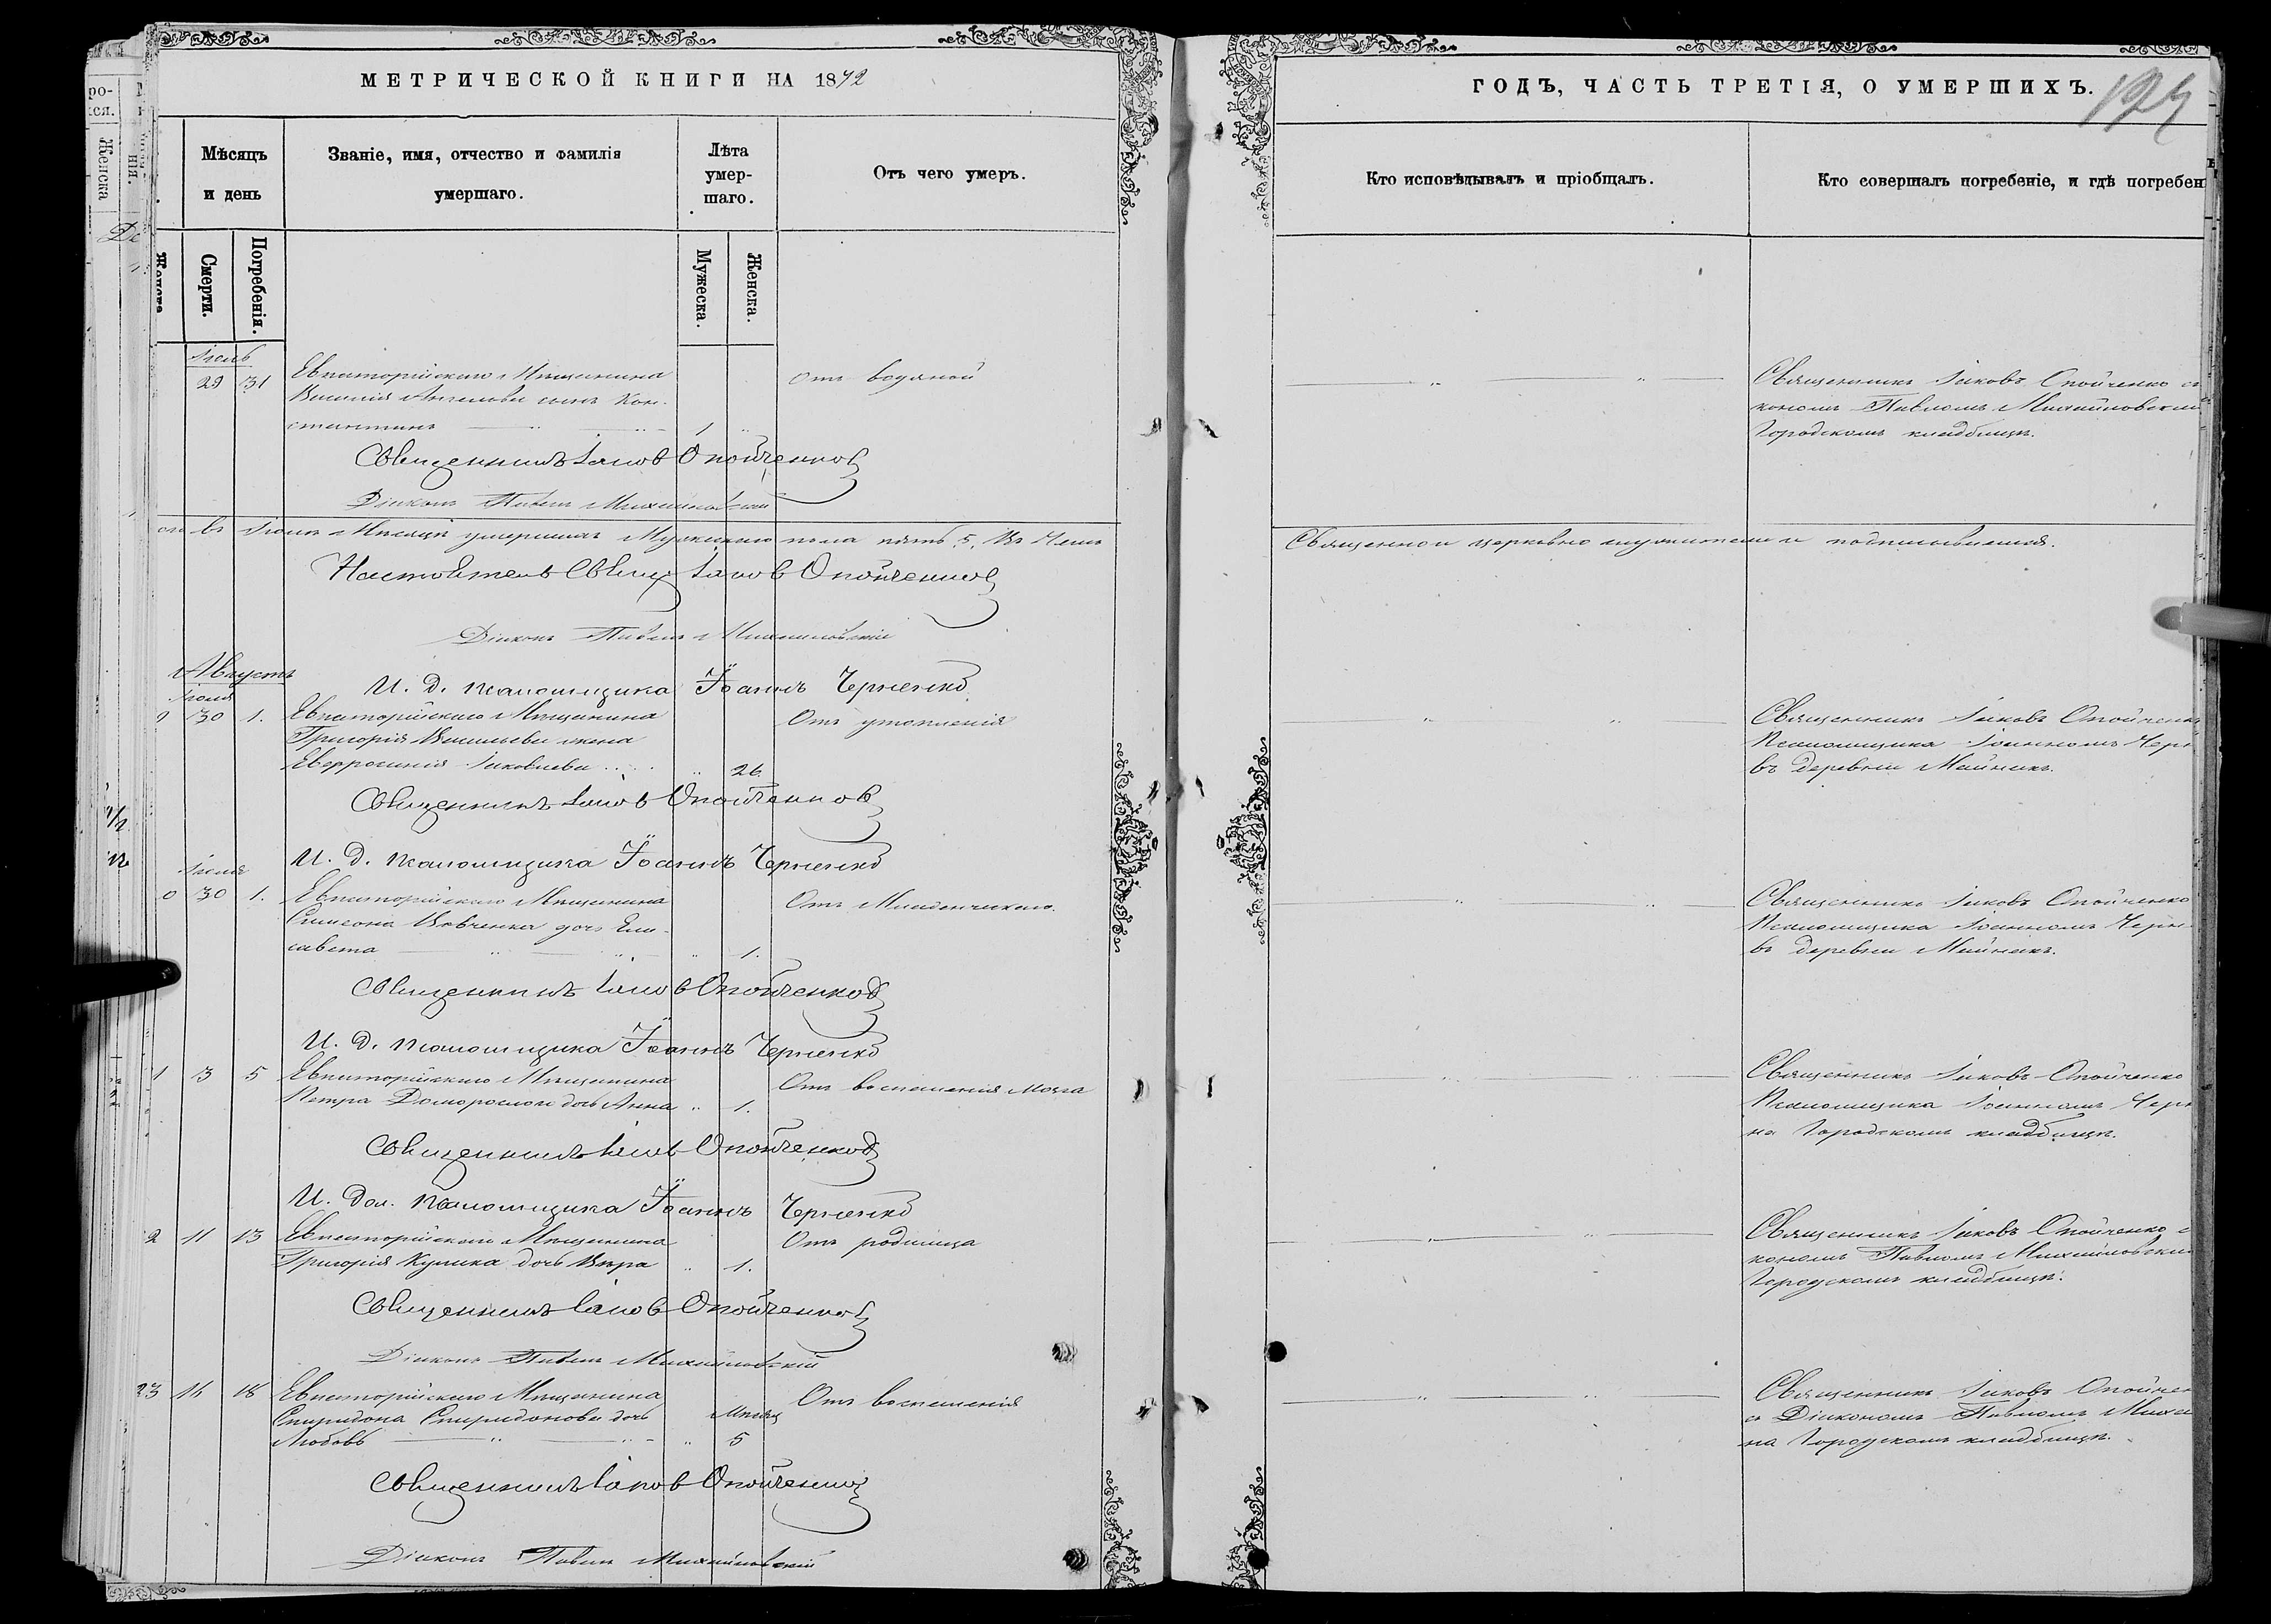 МЕТРИЧЕСКОЙ КНИГИ НА 1872
ГОДЪ, ЧАСТЬ ТРЕТІЯ, О УМЕРШИХЪ.
Мѣсяцъ
и день
Званіе, имя, отчество и фамилія
умершаго.
Лѣта
умер-
шаго.
Отъ чего умеръ.
Смерти.
Погребенія.
Мужеска.
Женска.
Кто исповѣдывалъ и пріобщалъ.
Кто совершалъ погребеніе, и гдѣ погребен
Іюль
29 31 Евпаторійскаго Мѣщанина отъ водяной
Василія Ангелова сынъ Кон-
стантинъ 1 "
Священникъ Іаковъ Опойченко
Діаконъ Павелъ Михайловскій
Священникъ Іаковъ Опойченко съ
кономъ Павломъ Михайловским
Городскомъ кладбищѣ.
въ Іюлѣ Мѣсяцѣ умершихъ Мужескаго пола пять 5. Въ чемъ
Священно и церковно служители и подписываемся.
Настоятель Свящ Іаковъ Опойченко
Діаконъ Павелъ Михайловскій
Августъ
Іюля
И. д. псаломщика Іоаннъ Черненко
30 1. Евпаторійскаго Мѣщанина Отъ утопленія
Григорія Васильева жена
Евфросинія Іаковлева " 26.
Священникъ Іаковъ Опойченко
И. д. псаломщика Іоаннъ Черненко
Священникъ Іаковъ Опойченко
Псаломщика Іоанномъ Черн
въ деревни Майнакъ.
Іюля
0 30 1. Евпаторійскаго Мѣщанина Отъ Младенческаго.
Симеона Вовченка дочь Ели-
савета " 1.
Священникъ Іаковъ Опойченко
И. д. псаломщика Іоаннъ Черненко
Священникъ Іаковъ Опойченко
Псаломщика Іоанномъ Черн
въ деревни Майнакъ.
1 3 5 Евпаторійскаго Мѣщанина Отъ воспаленія мозга
Петра дочь Анна " 1.
Священникъ Іаковъ Опойченко
И. дол. псаломщика Іоаннъ Черненко
Священникъ Іаковъ Опойченко
Псаломщика Іоанномъ Черн
на Городскомъ кладбищѣ.
2 11 13 Евпаторійскаго Мѣщанина Отъ родимца
Григорія Кулика дочь Вѣра " 1.
Священникъ Іаковъ Опойченко
Діаконъ Павелъ Михайловскій
Священникъ Іаковъ Опойченко с
кономъ Павломъ Михайловским
Городскомъ кладбищѣ.
23 16 18 Евпаторійскаго Мѣщанина Отъ воспаленія
Спиридона Спиридонова дочь Мѣсяц
Любовь " 5
Священникъ Іаковъ Опойченко
Діаконъ Павелъ Михайловскій
Священникъ Іаковъ Опойчен
съ Діакономъ Павломъ Миха
на Городскомъ кладбищѣ.